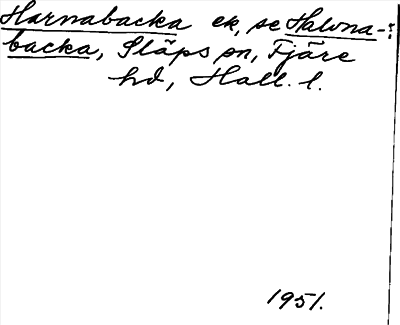 Harnabacka ek, se Halvna-
backa, Släps sn, Fjäre
hd, Hall. l.
1951.